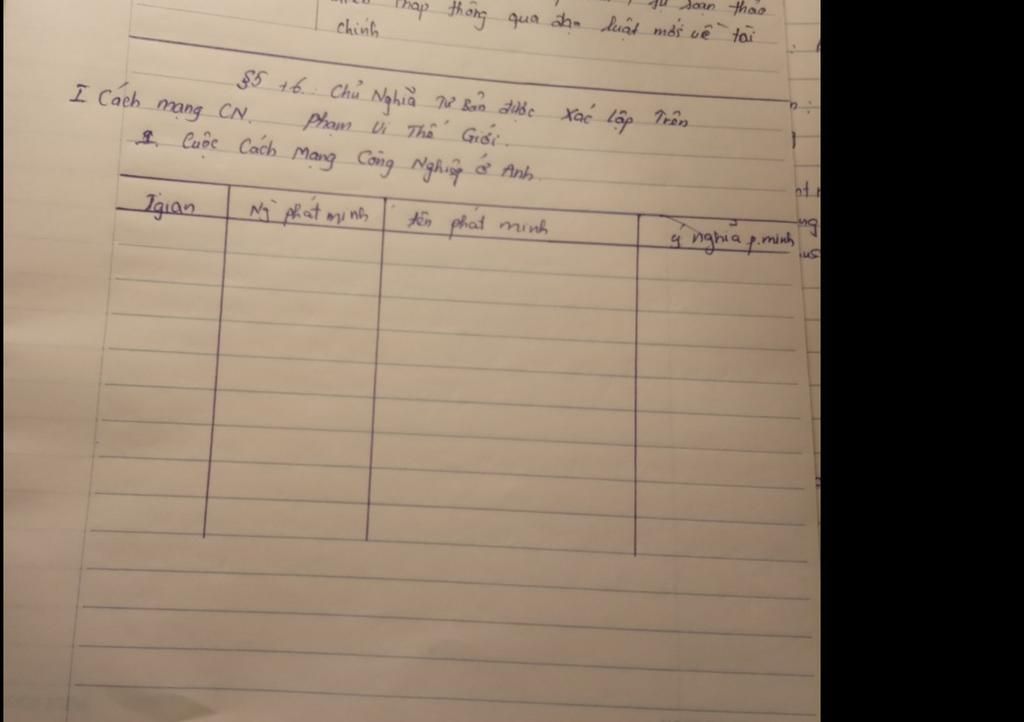 Pháp thông qua đạo luật mới về tài
chính
§5 +6. Chủ Nghĩa Tư Bản được Xác Lập Trên
Phạm Vi Thế Giới.
I Cách mạng CN.
1. Cuộc Cách Mạng Công Nghiệp ở Anh
Tgian Ng phát minh tên phát minh ý nghĩa p.minh